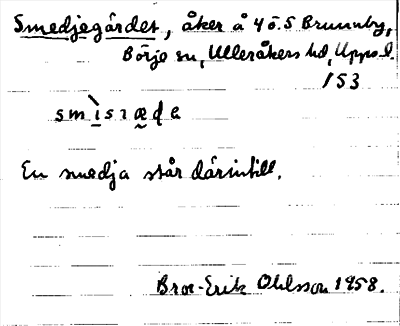 Smedjegärdet, åker å 4 ö. S Brunnby,
Börje sn, Ulleråkers hd, Upps. l.
153
smìsɿæḍe
En smedja står därintill.
Bror-Erik Ohlsson 1958.